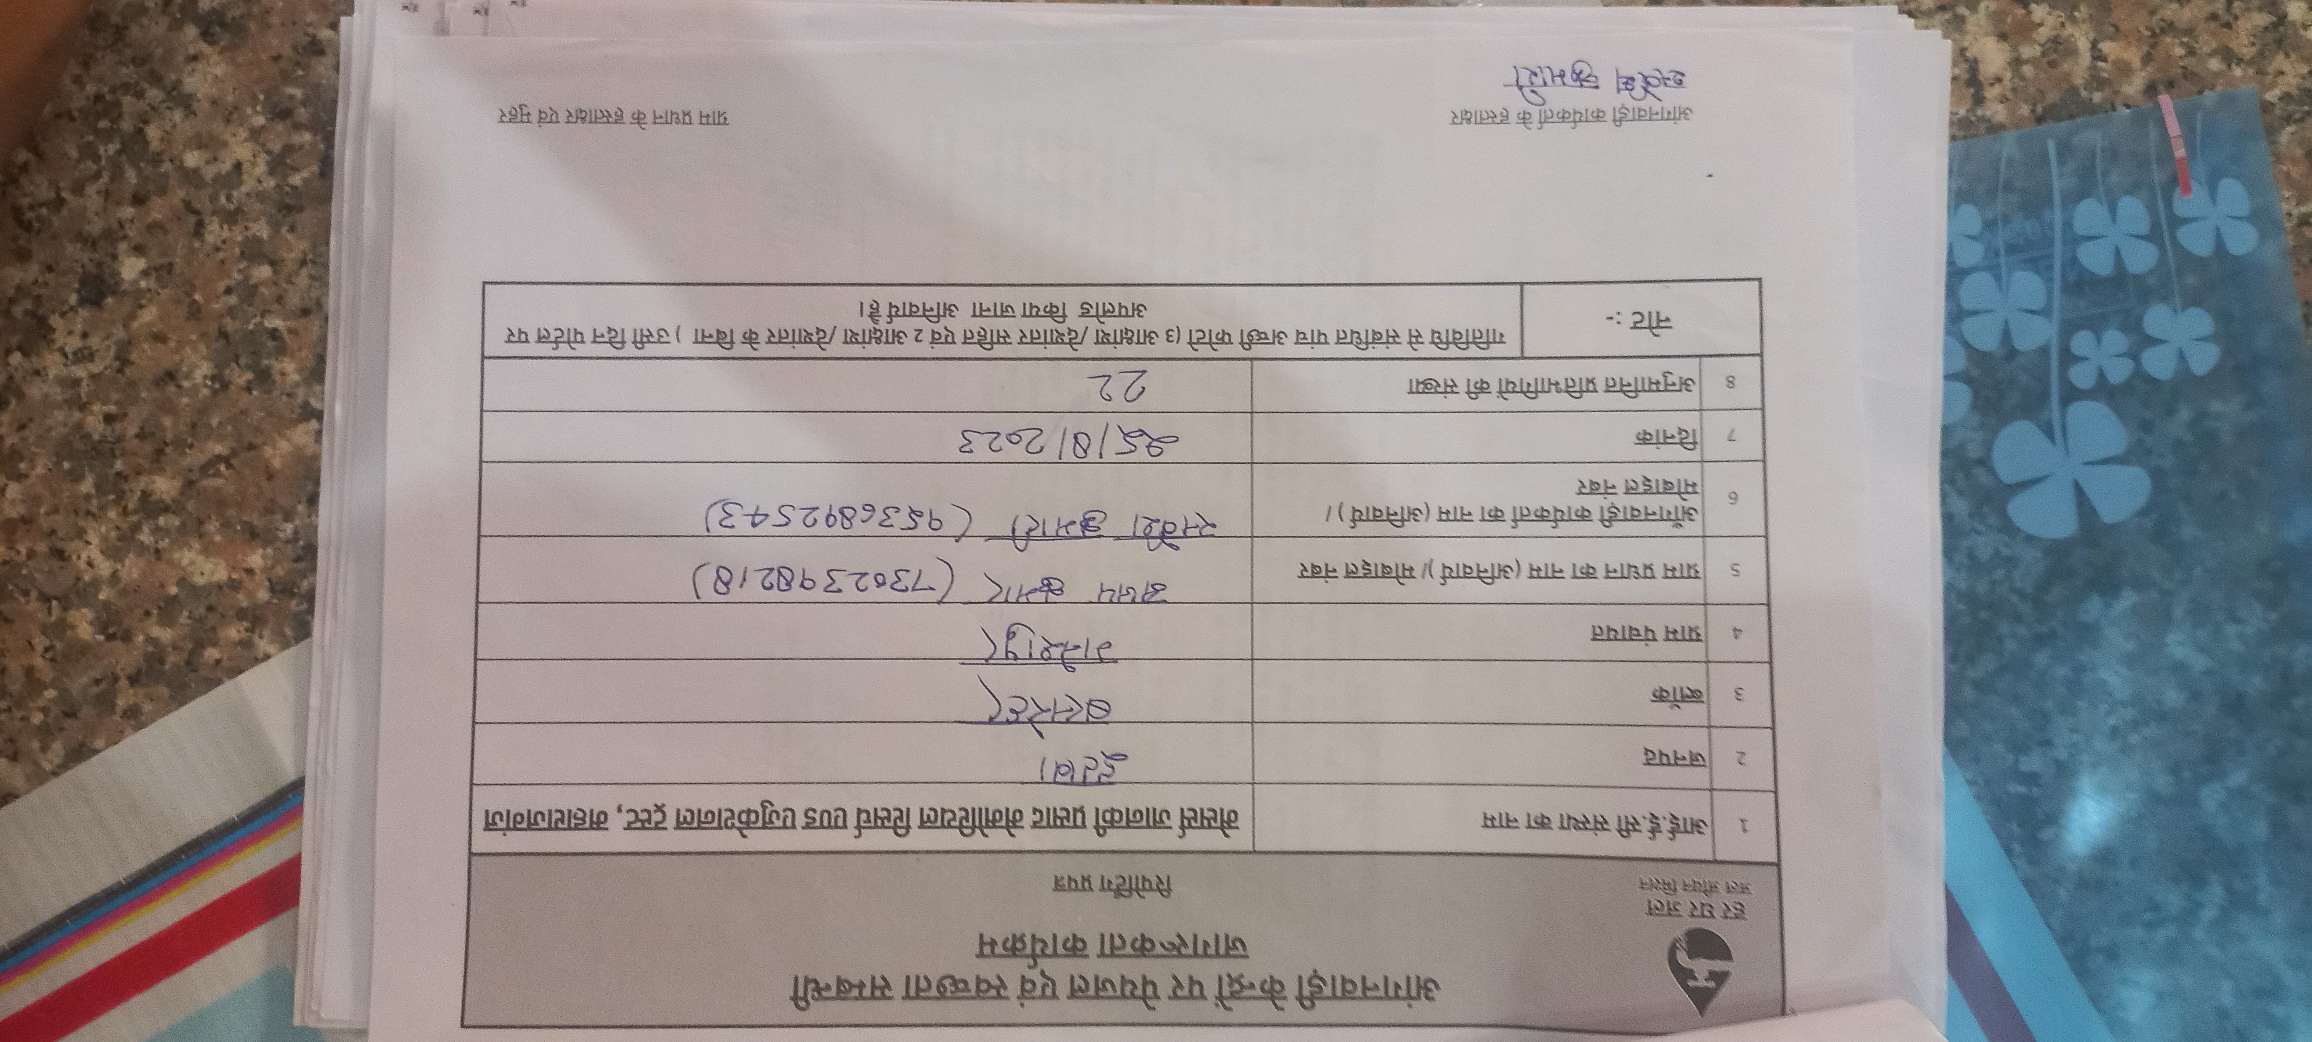 हर घर जल
जल जीवन मिशन
आंगनवाड़ी केन्द्रों पर पेयजल एवं स्वच्छता सम्बन्धी
जागरूकता कार्यक्रम
रिपोर्टिंग प्रपत्र
1 आई.ई.सी संस्था का नाम मेसर्स जानकी प्रसाद मेमोरियल रिसर्च एण्ड एजुकेशनल ट्रस्ट, महाराजगंज
2 जनपद इटावा
3 ब्लॉक बसरेहर
4 ग्राम पंचायत
5 ग्राम प्रधान का नाम (अनिवार्य)/ मोबाइल नंबर अजय कुमार (7302398218)
6 आँगनवाड़ी कार्यकर्ता का नाम (अनिवार्य)/
मोबाइल नंबर कुमारी (9536892543)
7 दिनांक 25/8/2023
8 अनुमानित प्रतिभागियों की संख्या 22
नोट :- गतिविधि से संबंधित पांच अच्छी फोटो (3 आक्षांश /देशांतर सहित एवं 2 आक्षांश /देशांतर के बिना ) उसी दिन पोर्टल पर
अपलोड किया जाना अनिवार्य है।
आंगनवाड़ी कार्यकर्ता के हस्ताक्षर ग्राम प्रधान के हस्ताक्षर एवं मुहर
कुमारी